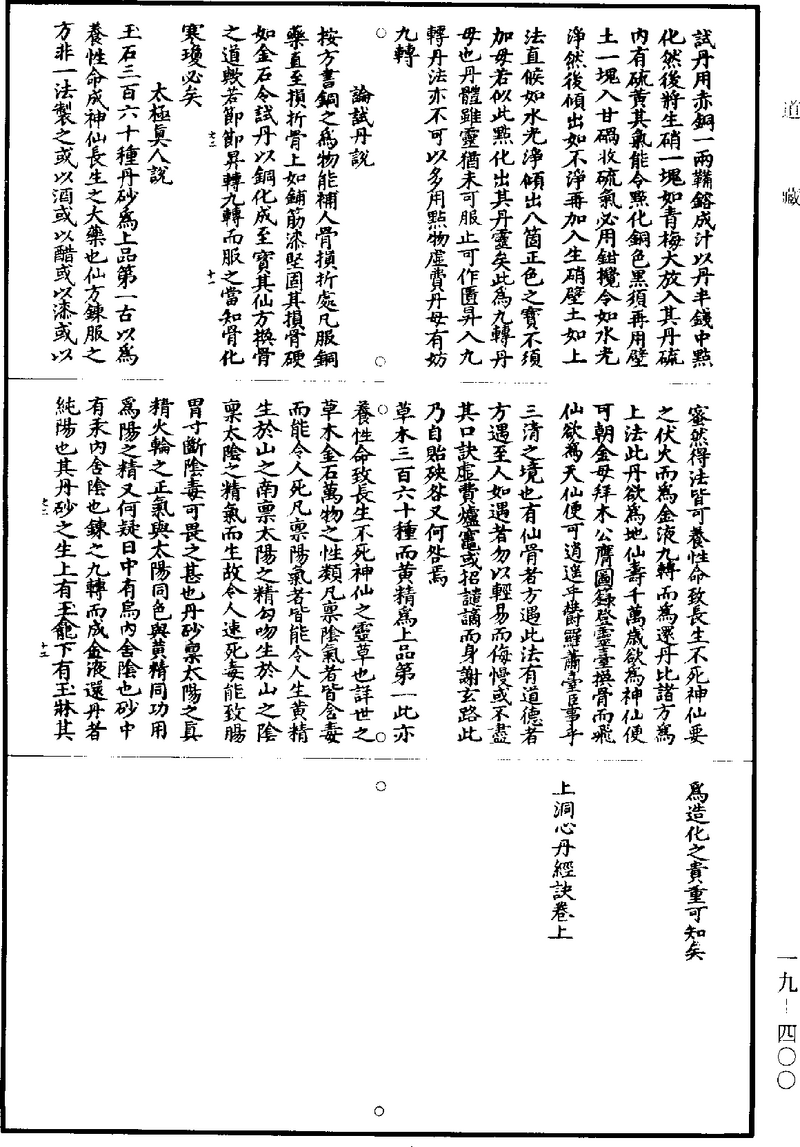 道藏
試丹用赤銅一兩鞴鎔成汁以丹半錢中點
化然後將生硝一塊如青梅大放入其丹硫
內有硫黃其氣能令點化銅色黑須再用壁
土一塊入甘堝收硫氣必用鉗攪令如水光
淨然後傾出如不淨再加入生硝壁土如上
法直候如水光淨傾出八箇正色之寶不須
加母若似此點化出其丹靈矣此爲九轉丹
母也丹體雖靈猶未可服止可作匱昇入九
轉丹法亦不可以多用點物虛費丹母有妨
九轉
論試丹說
按方書銅之爲物能補人骨損折處凡服銅
藥直至損折骨上如鋪筋漆堅固其損骨硬
如金石令試丹以銅化成至寶其仙方換骨
之道歟若節節昇轉九轉而服之當知骨化
寒瓊必矣
太極眞人說
玉石三百六十種丹砂爲上品第一古以爲
養性命成神仙長生之大藥也仙方鍊服之
方非一法製之或以酒或以醋或以漆或以
蜜然得法皆可養性命致長生不死神仙要
之伏火而爲金液九轉而爲還丹比諸方爲
上法此丹欲爲地仙壽千萬歲欲爲神仙便
可朝金母拜木公膺圖籙登靈臺換骨而飛
仙欲爲天仙便可逍遥乎欝羅蕭臺臣事乎
三清之境也有仙骨者方遇此法有道德者
方遇至人如遇者勿以輕易而侮慢或不盡
其口訣虛費爐竈或招譴謫而身謝玄路此
乃自貽殃咎又何咎焉
草木三百六十種而黃精爲上品第一此亦
養性命致長生不死神仙之靈草也詳世之
草木金石萬物之性類凡禀陰氣者皆含毒
而能令人死凡禀陽氣者皆能令人生黃精
生於山之南禀太陽之精勾吻生於山之陰
禀太陰之精氣而生故令人速死毒能致腸
胃寸斷陰毒可畏之甚也丹砂禀太陽之眞
精火輪之正氣與太陽同色與黃精同功用
爲陽之精又何疑日中有烏內含陰也砂中
有汞內含陰也鍊之九轉而成金液還丹者
純陽也其丹砂之生上有玉龕下有玉牀其
爲造化之貴重可知矣
上洞心丹經訣卷上
一九-四〇〇